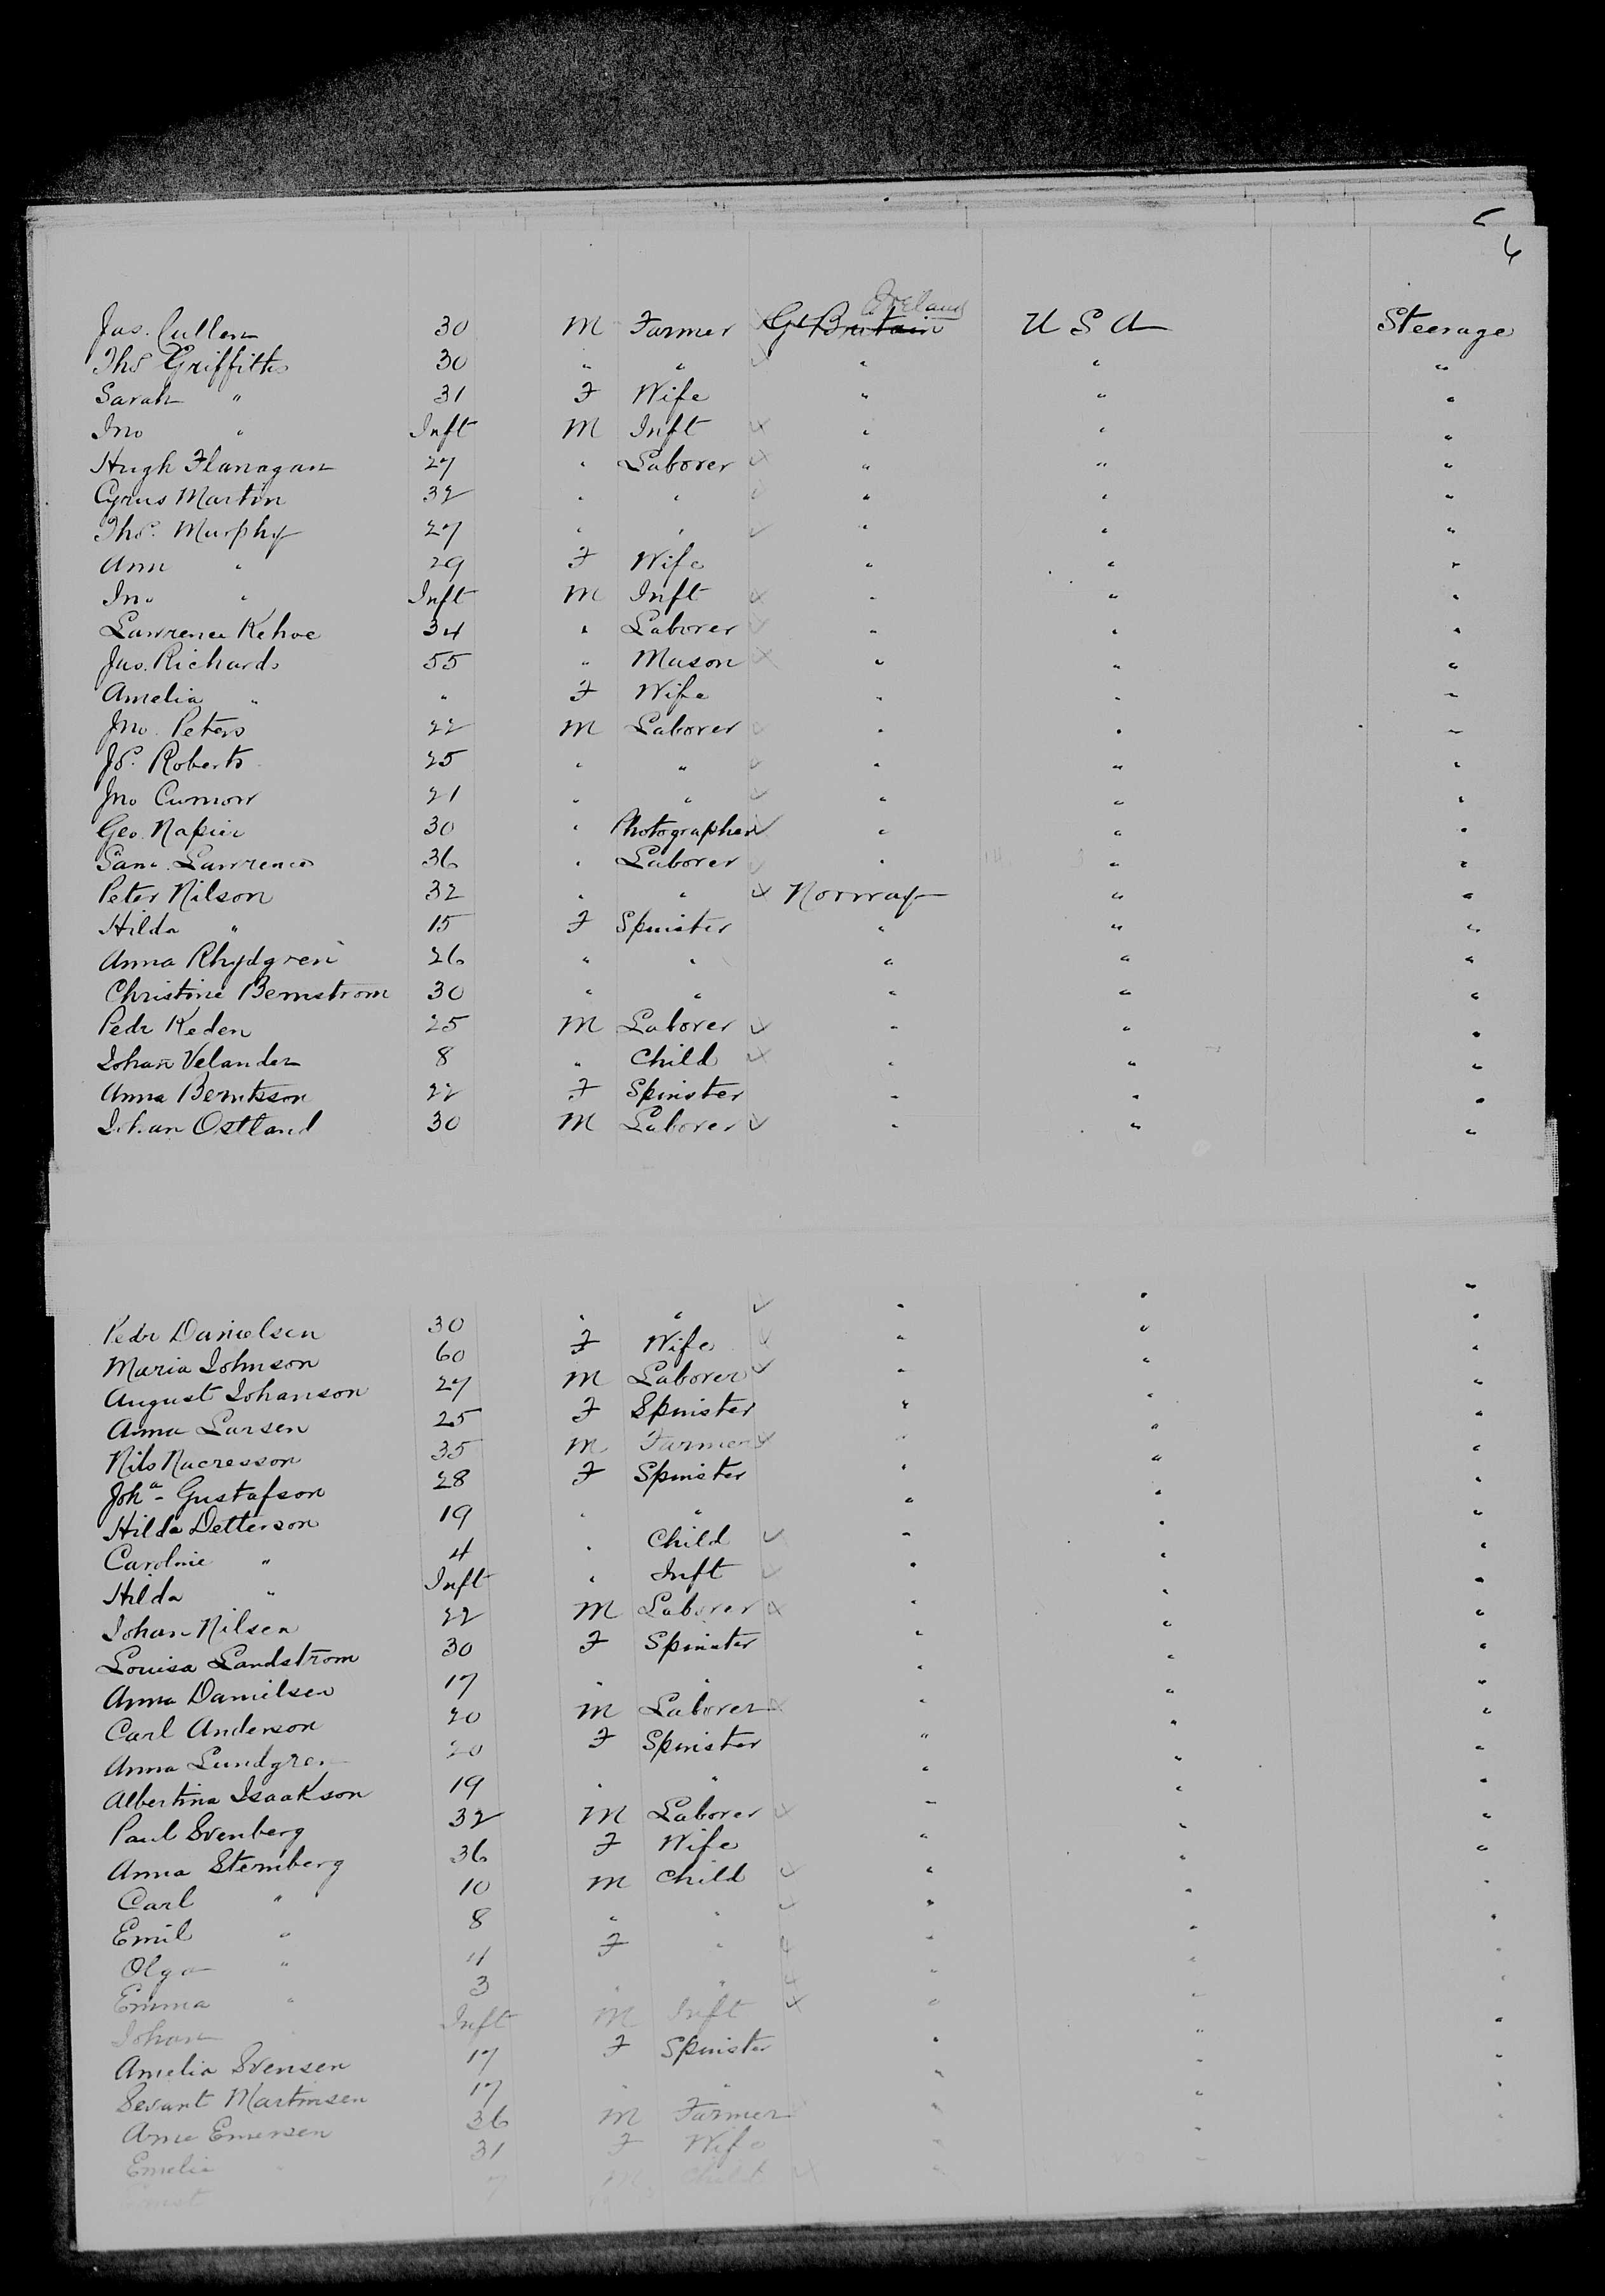 6
Ireland
Jas. Cullen 30 M Farmer Gt Britain U S A Steerage
Thos Griffiths 30 " " " " "
Sarah " 31 F Wife " " "
Jno " Inft M Inft " " "
Hugh Flanagan 27 " Laborer " " "
Cyrus Martin 32 " " " " "
Thos. Murphy 27 " " " " "
Ann " 29 F Wife " " "
Jno " Inft M Inft " " "
Lawrence Kehoe 34 " Laborer " " "
Jas. Richards 55 " Mason " " "
Amelia " " F Wife " " "
Jno. Peters 22 M Laborer " " "
Js. Roberts 25 " " " " "
Jno Curnow 21 " " " " "
Geo. Napier 30 " Photographer " " "
Sam. Lawrence 36 " Laborer " " "
Peter Nilson 32 " " Norway " "
Hilda " 15 F Spinster " " "
Anna Rhydgren 26 " " " " "
Christine Bernstrom 30 " " " " "
Pedr Keden 25 M Laborer " " "
Johan Velander 8 " Child " " "
Anna Berntsson 22 F Spinster " " "
Johan Ostland 30 M Laborer " " "
Pedr Danielsen 30 " " " " "
Maria Johnson 60 F Wife " " "
August Johanson 27 M Laborer " " "
Anna Larsen 25 F Spinster " " "
Nils 35 M Farmer " " "
Joha Gustafson 28 F Spinster " " "
Hilda Detterson 19 " " " " "
Caroline " 4 " Child " " "
Hilda " Inft " Inft " " "
Johan Nilsen 22 M Laborer " " "
Louisa Landstrom 30 F Spinster " " "
Anna Danielsen 17 " " " " "
Carl Anderson 20 M Laborer " " "
Anna Lundgren 20 F Spinster " " "
Albertina Isaakson 19 " " " " "
Paul Svenberg 32 M Laborer " " "
Anna Sternberg 36 F Wife " " "
Carl " 10 M Child " " "
Emil " 8 " " " " "
Olga " 4 F " " " "
Emma " 3 " " " " "
Johan Inft M Inft " " "
Amelia Svensen 17 F Spinster " " "
Martinsen 17 " " " " "
Arne Emersen 36 M Farmer " " "
Emelie " 31 F Wife " "
7 M Child "